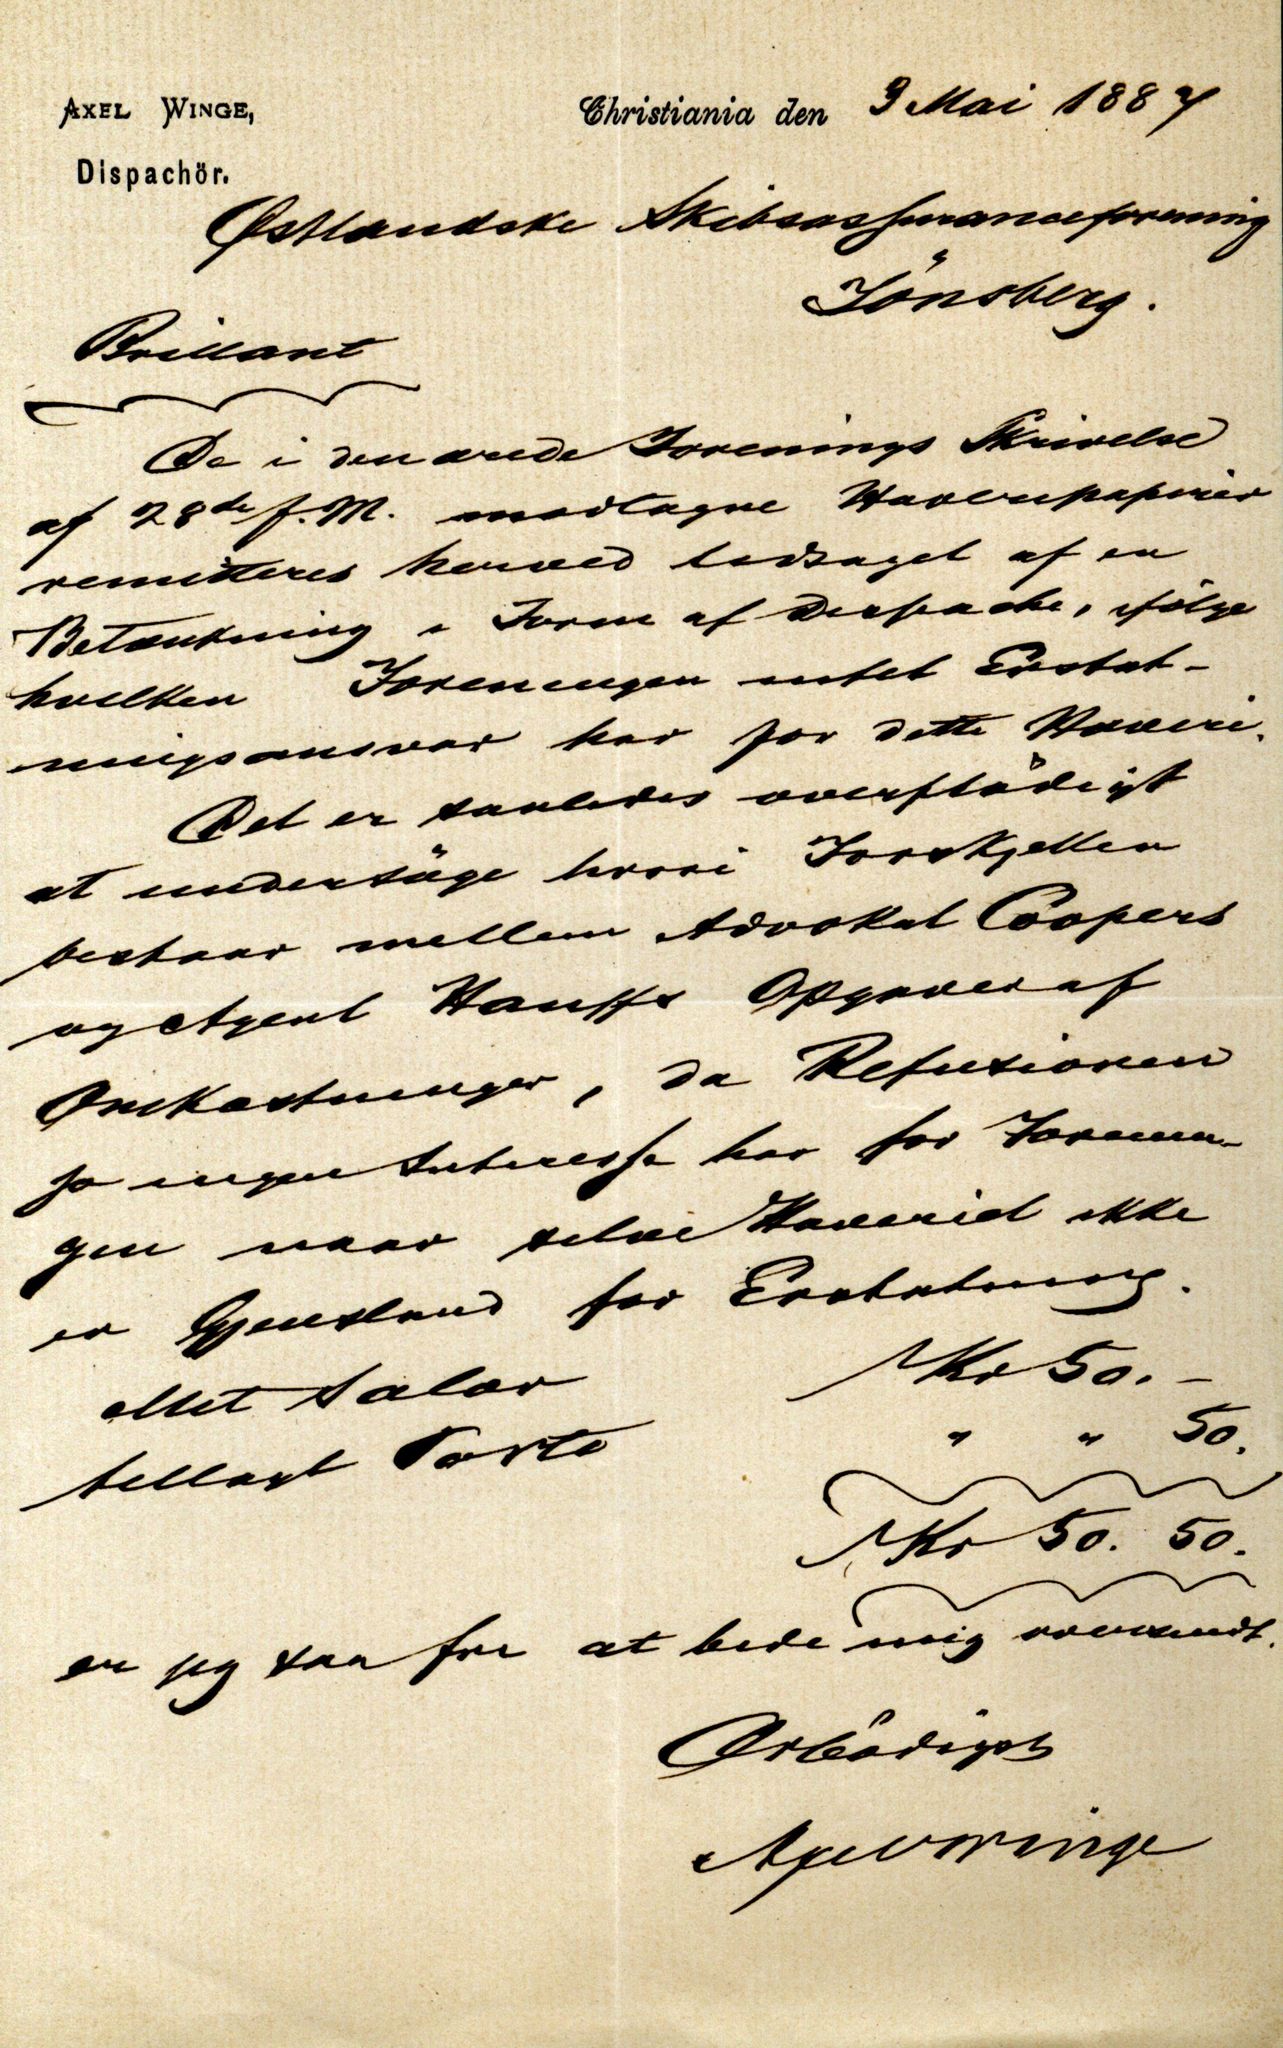 AXEL WINGE,
Dispachör.
Christiania den 9 Mai 1887
Østlandske Skibsassuranceforening
Tönsberg.
Brillant
De i den ærede Forenings Skrivelse
af 28de f. M. modtagne Havaripapirer
remitteres herved ledsaget af en
Betænkning i Form af Dispache, ifølge
hvilken Foreningen intet Erstat-
ningsansvar har for dette Haveri.
Det er saaledes overflödigt
at undersöge hvori Forskjellen
bestaar mellem Advokat Coopers
og Agent Hauffs Opgaver af
Omkostninger, da Refusionen
jo ingen Interesse har for Forenin-
gen naar selve Haveriet ikke
er Gjenstand for Erstatning.
Mit Salær Kr 50. -
tillagt Porto " " 50.
Kr 50. 50.
er jeg saa fri at bede mig oversendt.
Ærbödigst
Axel Winge